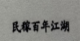 民稼百年江湖